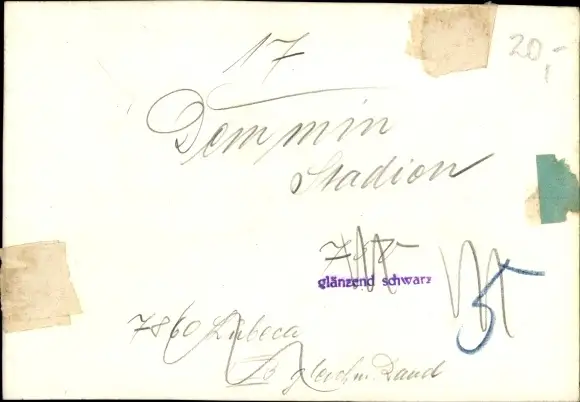 17
20,-
Demmin
Stadion
glänzend schwarz
5
7860 Lubeca
gleichm. Rand